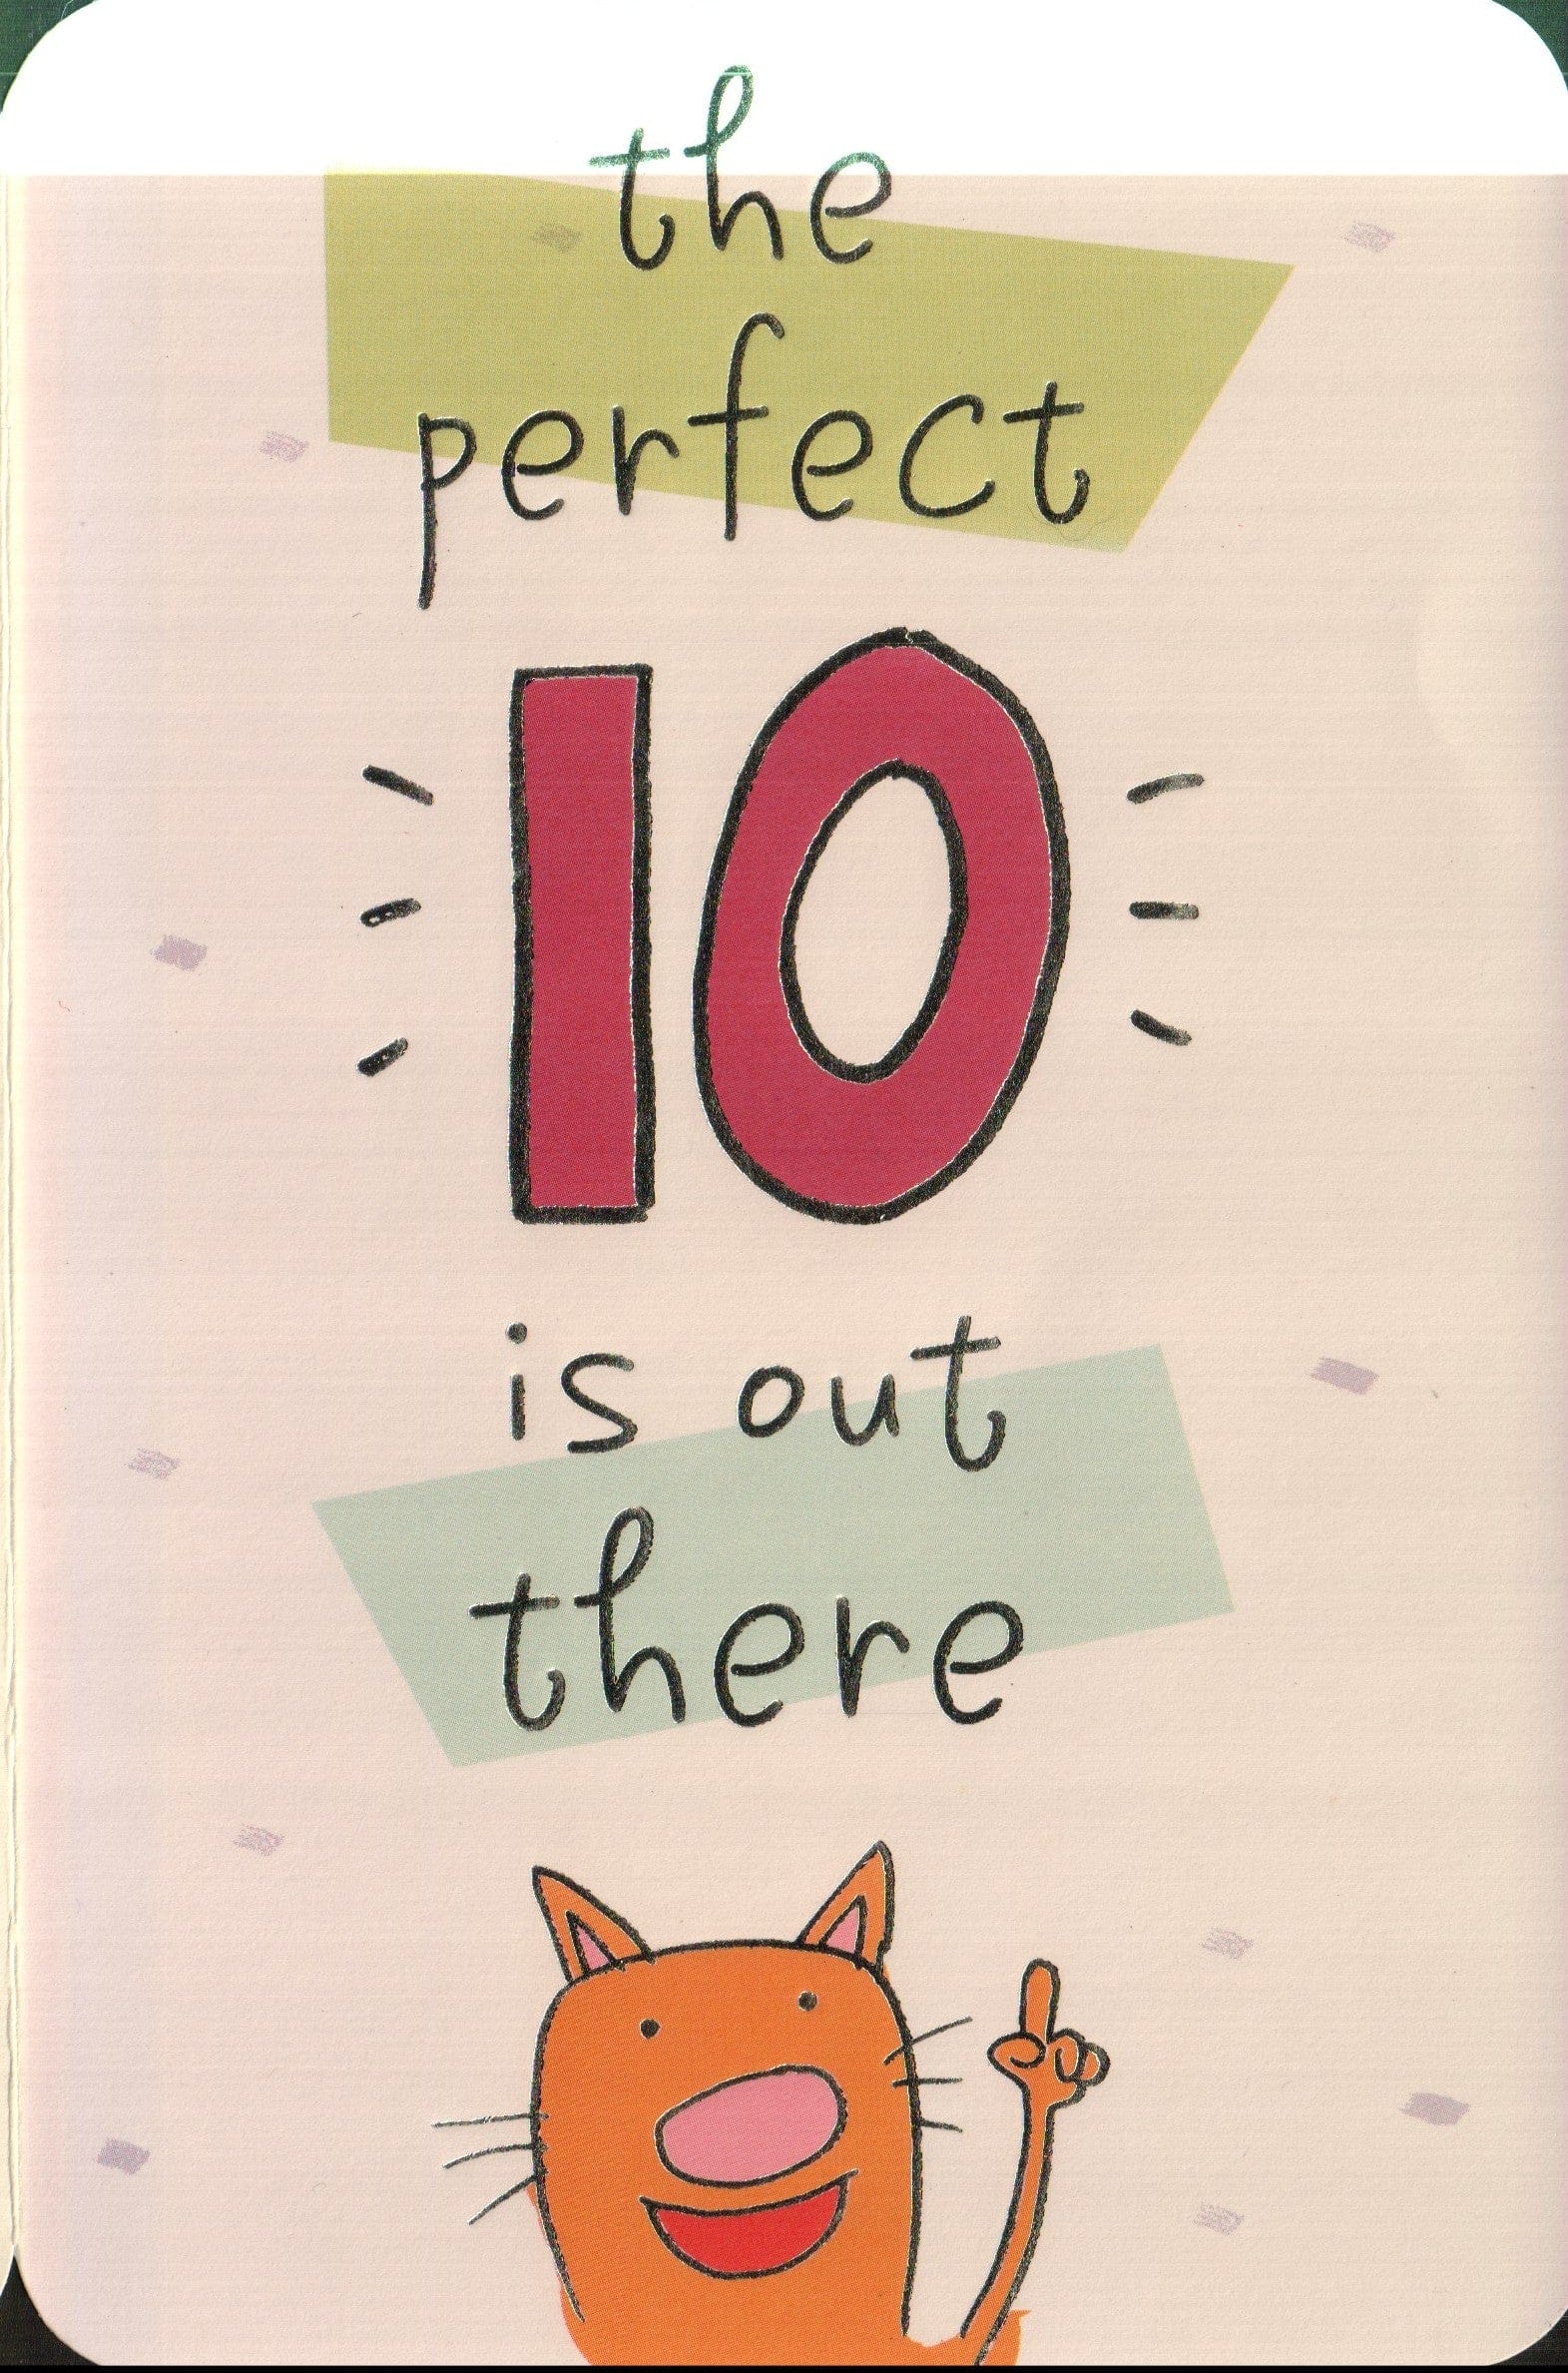 the
perfect
10
is out
there